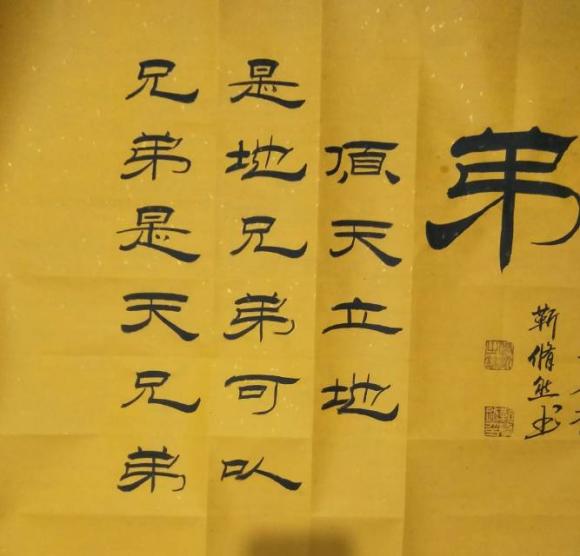 兄弟是天兄弟
是地兄弟可以
頂天立地
弟
靳脩然书